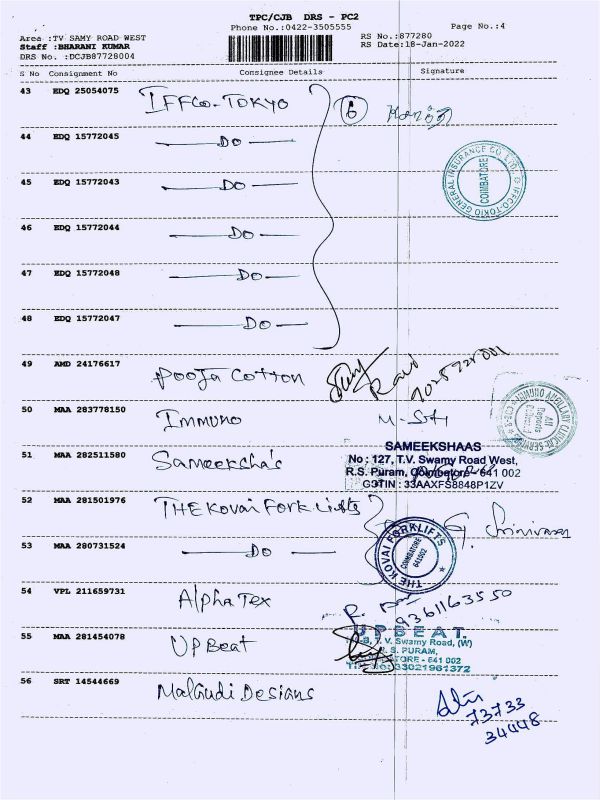 TPC/CJB DRS - PC2
Phone No.:0422-3505555
Page No.:4
Area :TV SAMY ROAD WEST
RS No.:877280
Staff :BHARANI KUMAR
RS Date:18-Jan-2022
DRS No. :DCJB87728004
S No Consignment No Consignee Details Signature
43 EDQ 25054075 IFFCO-TOKYO 6
44 EDQ 15772045 — DO —
45 EDQ 15772043 — DO —
GENERAL INSURANCE CO. LTD. IFFCO-TOKIO
COIMBATORE
46 EDQ 15772044 — DO —
47 EDQ 15772048 — DO —
48 EDQ 15772047 — DO —
49 AMD 24176617 Pooja Cotton
Ravi
50 MAA 283778150 Immuno
51 MAA 282511580 Sameeksha's
SAMEEKSHAAS
No : 127, T.V. Swamy Road West,
R.S. Puram, Coimbatore - 641 002
GSTIN : 33AAXFS8848P1ZV
52 MAA 281501976 THE Kovai Fork Lifts
G. Srinivasan
53 MAA 280731524 — DO —
THE KOVAI FORKLIFTS
COIMBATORE
641 002
54 VPL 211659731 Alpha Tex
9361163550
55 MAA 281454078 UP Beat
UPBEAT
T. V. Swamy Road, (W)
R. S. PURAM,
641 002
56 SRT 14544669 Malgudi Designs
73733
34448